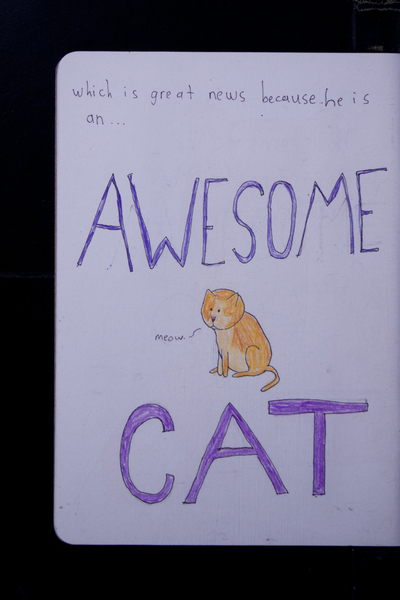 which is great news because he is
an...
AWESOME
meow.
CAT